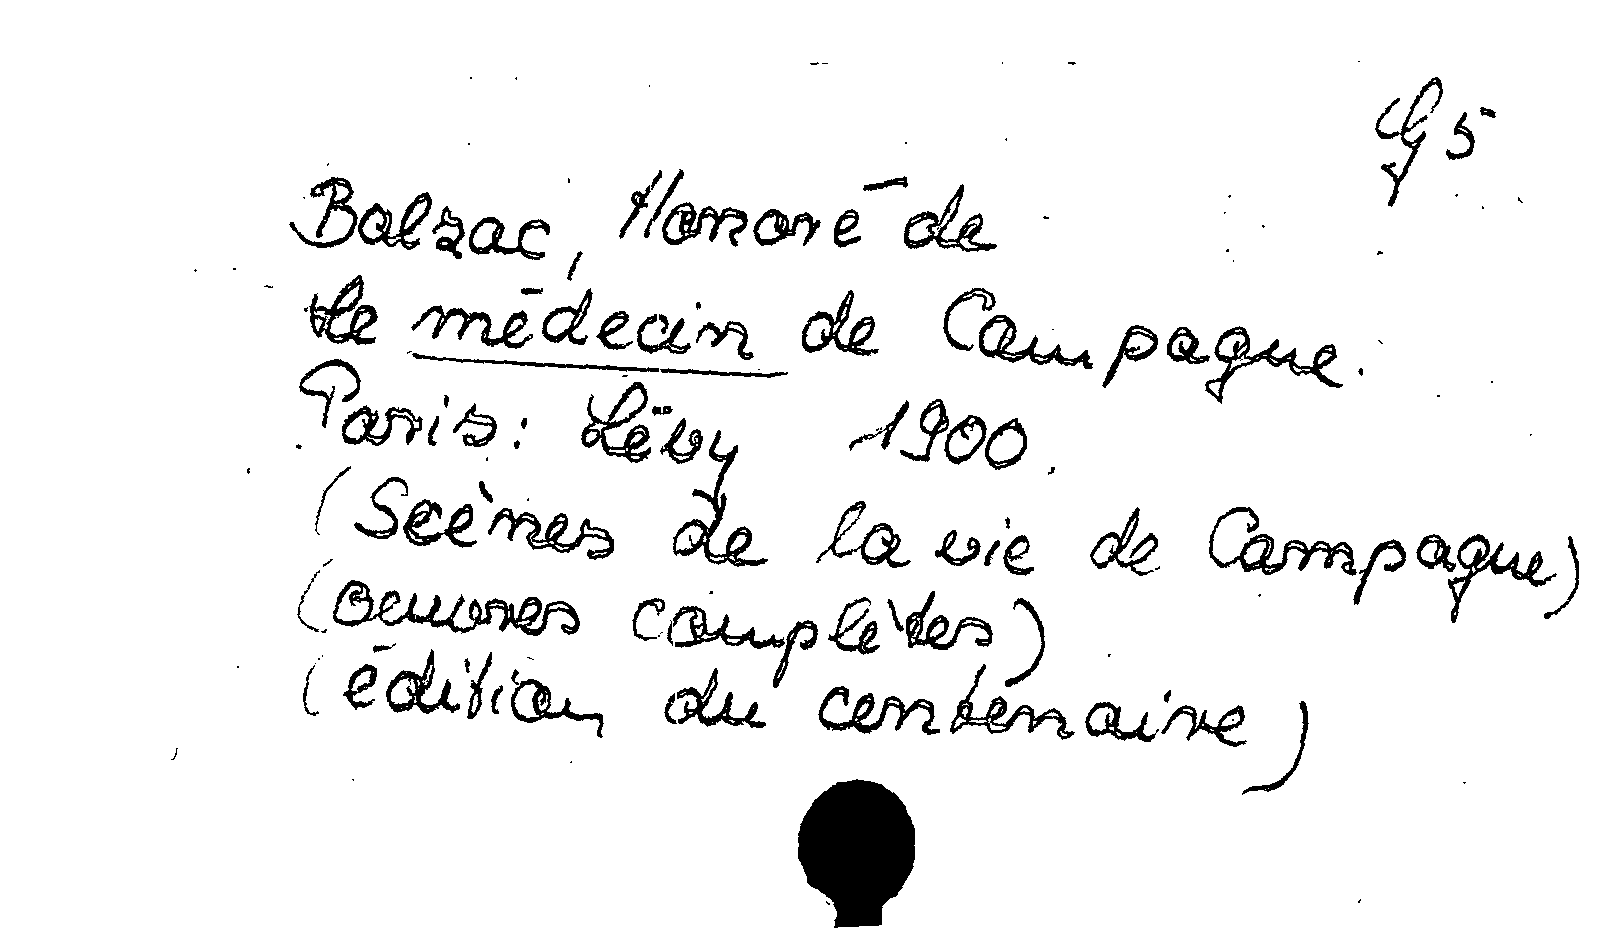 G5
Balzac, Honoré de
Le médecin de Campagne.
Paris: Lévy 1900.
(Scènes de la vie de Campagne)
(oeuvres complètes)
(édition du centenaire)